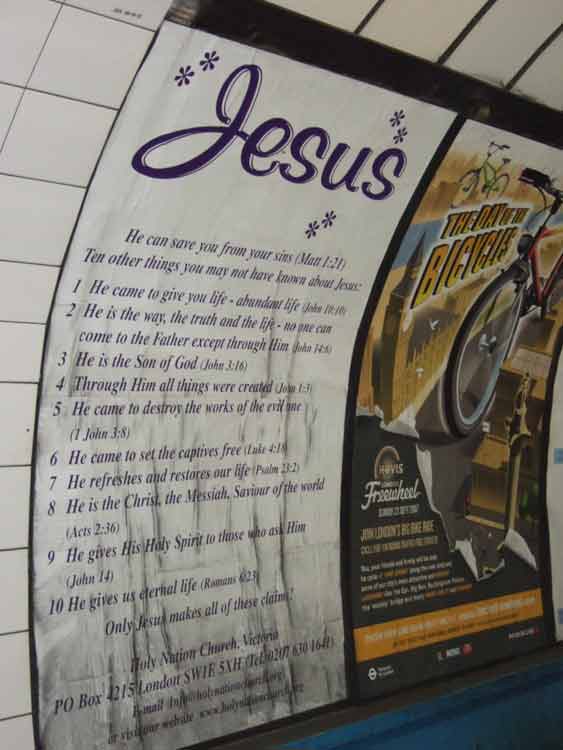 Jesus
He can save you from your sins (Matt 1:21)
Ten other things you may not have known about Jesus:
1 He came to give you life - abundant life (John 10:10)
2 He is the way, the truth and the life - no one can
come to the Father except through Him (John 14:6)
3 He is the Son of God (John 3:16)
4 Through Him all things were created (John 1:3)
5 He came to destroy the works of the evil one
(1 John 3:8)
6 He came to set the captives free (Luke 4:18)
7 He refreshes and restores our life (Psalm 23:2)
8 He is the Christ, the Messiah, Saviour of the world
(Acts 2:36)
9 He gives His Holy Spirit to those who ask Him
(John 14)
10 He gives us eternal life (Romans 6:23)
Only Jesus makes all of these claims!
Holy Nation Church, Victoria
PO Box 4215 London SW1E 5XH (Tel: 0207 630 1641)
E-mail Info@holynationchurch.org
or visit our website www.holynationchurch.org
THE DAY OF THE
BICYCLES
HOVIS
Freewheel
SUNDAY 23 SEPT 2007
JOIN LONDON'S BIG BIKE RIDE